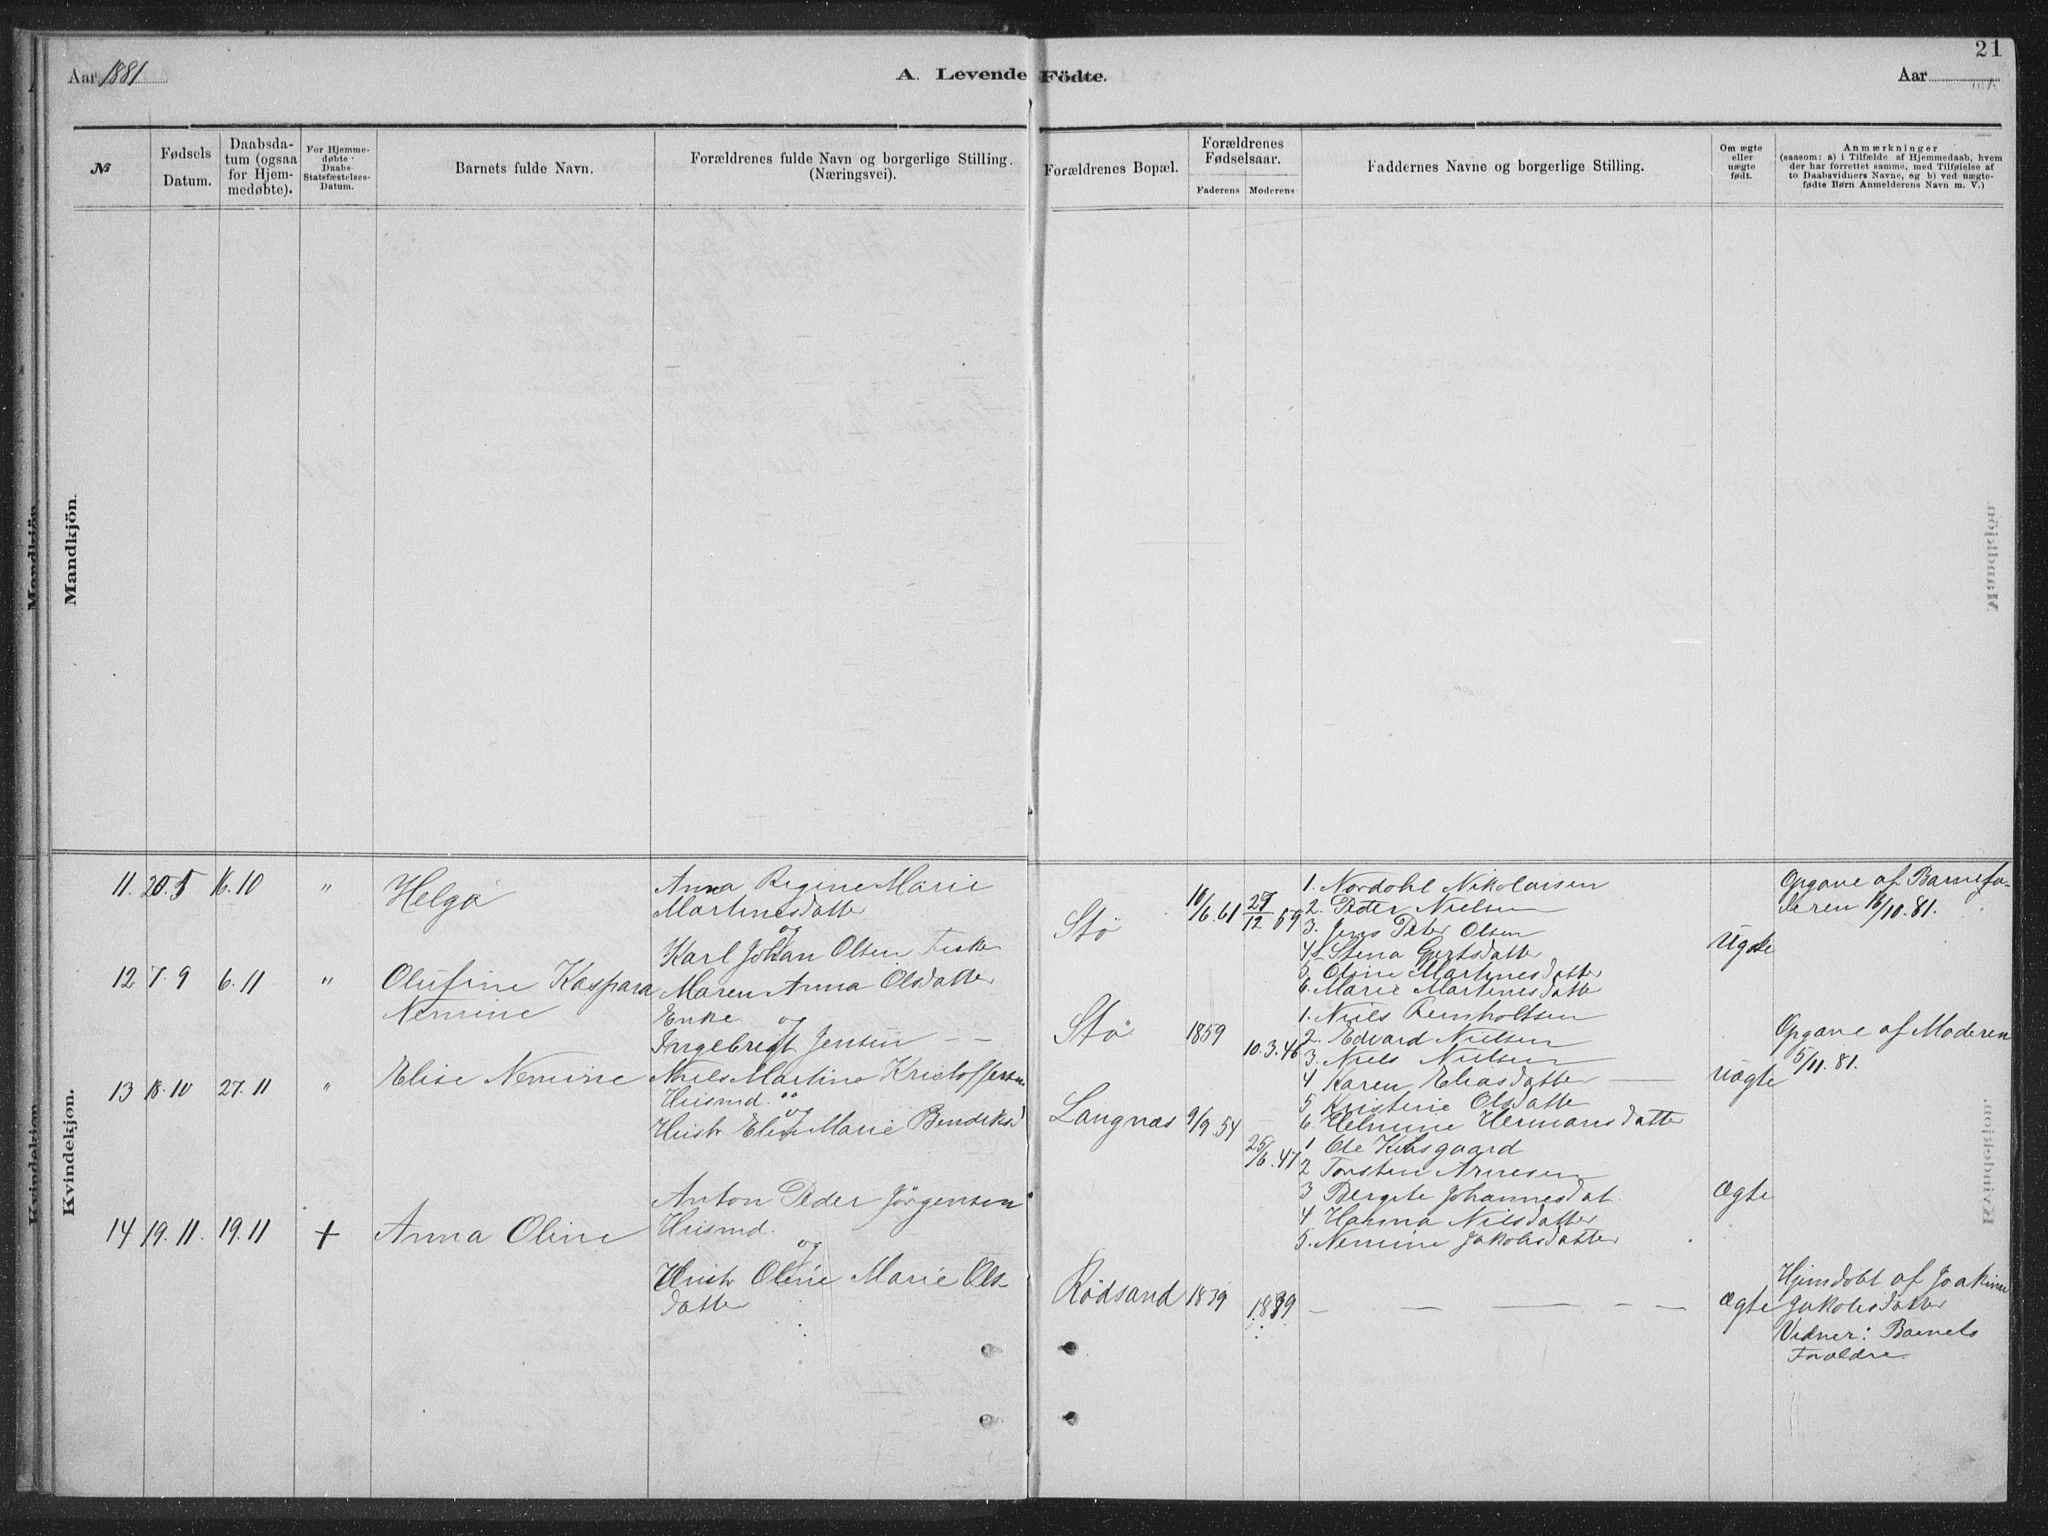 Aar 1881
A. Levende Födte.
21
Aar
№
Fødsels Datum.
Daabsdatum (ogsaa for Hjemmedøbte).
For Hjemmedøbte Daabs Statsfæstelses-Datum.
Barnets fulde Navn.
Forældrenes fulde Navn og borgerlige Stilling. (Næringsvei).
Forældrenes Bopæl.
Forældrenes Fødselsaar.
Faderens Moderens
Faddernes Navne og borgerlige Stilling.
Om ægte eller uægte født.
Anmærkninger
(saasom: a) i Tilfælde af Hjemmedaab, hvem
der har forrettet samme, med Tilføielse af
to Daabsvidners Navne, og b) ved uægte-
fødte Børn Anmelderens Navn m. V.)
Mandkjön.
Kvindekjön.
11. 20.5 16.10 " Helga
Anna Regine Marie
Martinesdatter
og
Karl Johan Olsen Fisker
Stø 10/6.61 27/12 59
1. Nordahl Nikolaisen
2. Peder Nielsen
3. Jens Peter Olsen
4 Stena Gjertsdatter
5. Oline Martinesdatter
6. Marie Martinesdatter
Ugte
Opgave af Barnefa-
deren 16/10.81.
12 7.9 6.11 " Olufine Kaspara
Nemine
Maren Anna Olsdatter
Enke og
Ingebrigt Jensen — —
Stø 1859 10.3.46
1. Niels Bernholtsen
2. Edvard Nielsen
3. Niels Nielsen
4 Karen Eliasdatter
5 Kristine Olsdatter
6. Helmine Hermansdatter
Uægte
Opgave af Moderen
5/11.81.
13 18.10 27.11 " Elise Nemine
Niels Martin Kristoffersen
Husmd. og
Hustr Elen Marie Bendiksd
Langnæs 9/9.54 25/6.47
1 Ole Kilsgaard
2 Torsten Arnesen
3 Bergite Johannesdat.
4 Hanna Nilsdatter
5. Nemine Jakobsdatter
Ægte
14 19.11. 19.11 + Anna Oline
Anton Peder Jörgensen
Husmd.
og
Hustr Oline Marie Ols-
datter
Rödsand 1839 1839 — — — — —
Ægte
Hjemdøbt af Joakime
Jakobsdatter
Vidner: Barnets
Forældre.